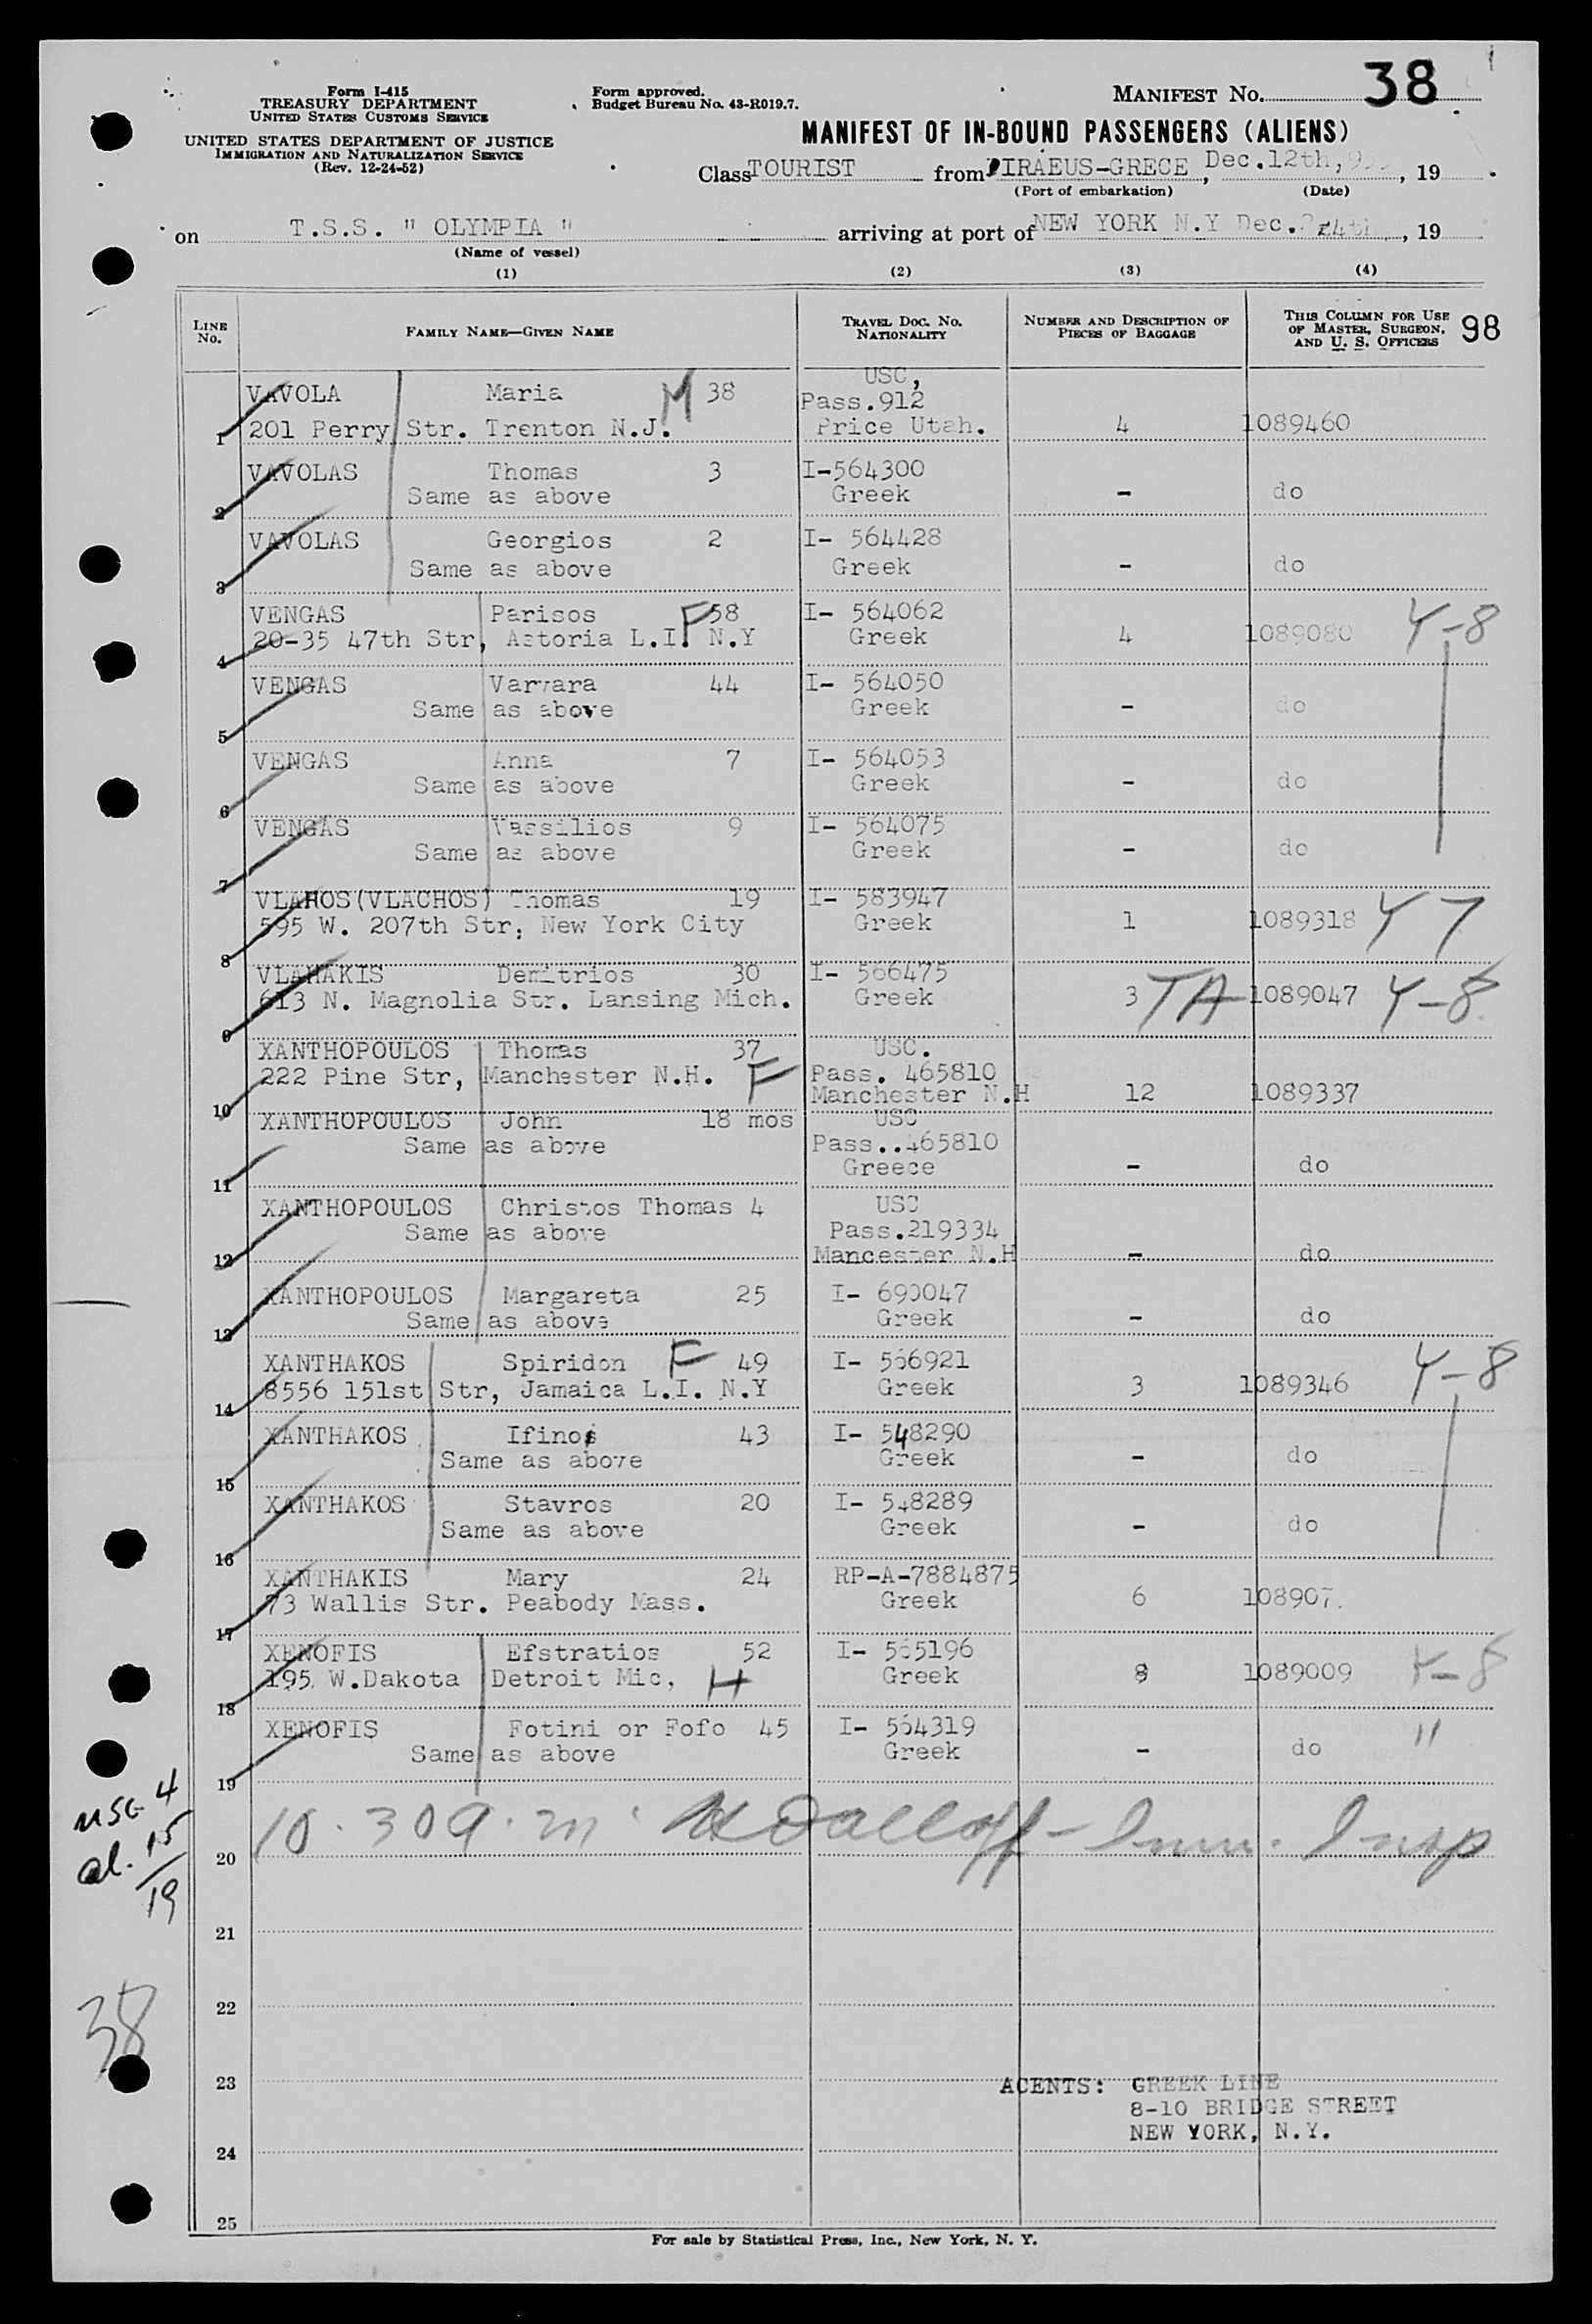 Form I-415
TREASURY DEPARTMENT
UNITED STATES CUSTOMS SERVICE
UNITED STATES DEPARTMENT OF JUSTICE
IMMIGRATION AND NATURALIZATION SERVICE
(Rev. 12-24-52)
Form approved.
Budget Bureau No. 43-R019.7.
MANIFEST No. 38
MANIFEST OF IN-BOUND PASSENGERS (ALIENS)
Class TOURIST from PIRAEUS-GRECE, Dec.12th, , 19
(Port of embarkation) (Date)
on T.S.S. " OLYMPIA " arriving at port of NEW YORK N.Y Dec. , 19
(Name of vessel)
(1) (2) (3) (4)
LINE No. FAMILY NAME—GIVEN NAME TRAVEL DOC. No. NATIONALITY NUMBER AND DESCRIPTION OF PIECES OF BAGGAGE THIS COLUMN FOR USE OF MASTER, SURGEON, AND U. S. OFFICERS 98
USC,
VAVOLA Maria M 38 Pass.912
1 201 Perry Str. Trenton N.J. Price Utah. 4 1089460
VAVOLAS Thomas 3 I-564300
2 Same as above Greek - do
VAVOLAS Georgios 2 I- 564428
3 Same as above Greek - do
VENGAS Parisos F 58 I- 564062
4 20-35 47th Str, Astoria L.I. N.Y Greek 4 1089080 Y-8
VENGAS Varvara 44 I- 564050
5 Same as above Greek - do
VENGAS Anna 7 I- 564053
6 Same as above Greek - do
VENGAS Vassilios 9 I- 564075
7 Same as above Greek - do
VLAHOS(VLACHOS) Thomas 19 I- 583947
8 595 W. 207th Str, New York City Greek 1 1089318 Y 7
VLAHAKIS Demitrios 30 I- 566475
9 613 N. Magnolia Str. Lansing Mich. Greek 3 TA 1089047 Y-8
XANTHOPOULOS Thomas 37 USC.
222 Pine Str, Manchester N.H. F Pass. 465810
10 Manchester N.H 12 1089337
XANTHOPOULOS John 18 mos USC
Same as above Pass..465810
11 Greece - do
XANTHOPOULOS Christos Thomas 4 USC
Same as above Pass.219334
12 Mancester N.H - do
XANTHOPOULOS Margareta 25 I- 690047
13 Same as above Greek - do
XANTHAKOS Spiridon F 49 I- 566921
14 8556 151st Str, Jamaica L.I. N.Y Greek 3 1089346 Y-8
XANTHAKOS 43 I- 548290
15 Same as above Greek - do
XANTHAKOS Stavros 20 I- 548289
16 Same as above Greek - do
XANTHAKIS Mary 24 RP-A-7884875
17 73 Wallis Str. Peabody Mass. Greek 6 108907
XENOFIS Efstratios 52 I- 565196
18 195 W.Dakota Detroit Mic, H Greek 8 1089009 Y-8
XENOFIS Fotini or Fofo 45 I- 564319 "
19 Same as above Greek - do
USC 4
al. 15
19
20 10.30 a.m. Imm. Insp
21
22
38
23 AGENTS: GREEK LINE
8-10 BRIDGE STREET
NEW YORK, N.Y.
24
25
For sale by Statistical Press, Inc., New York, N. Y.